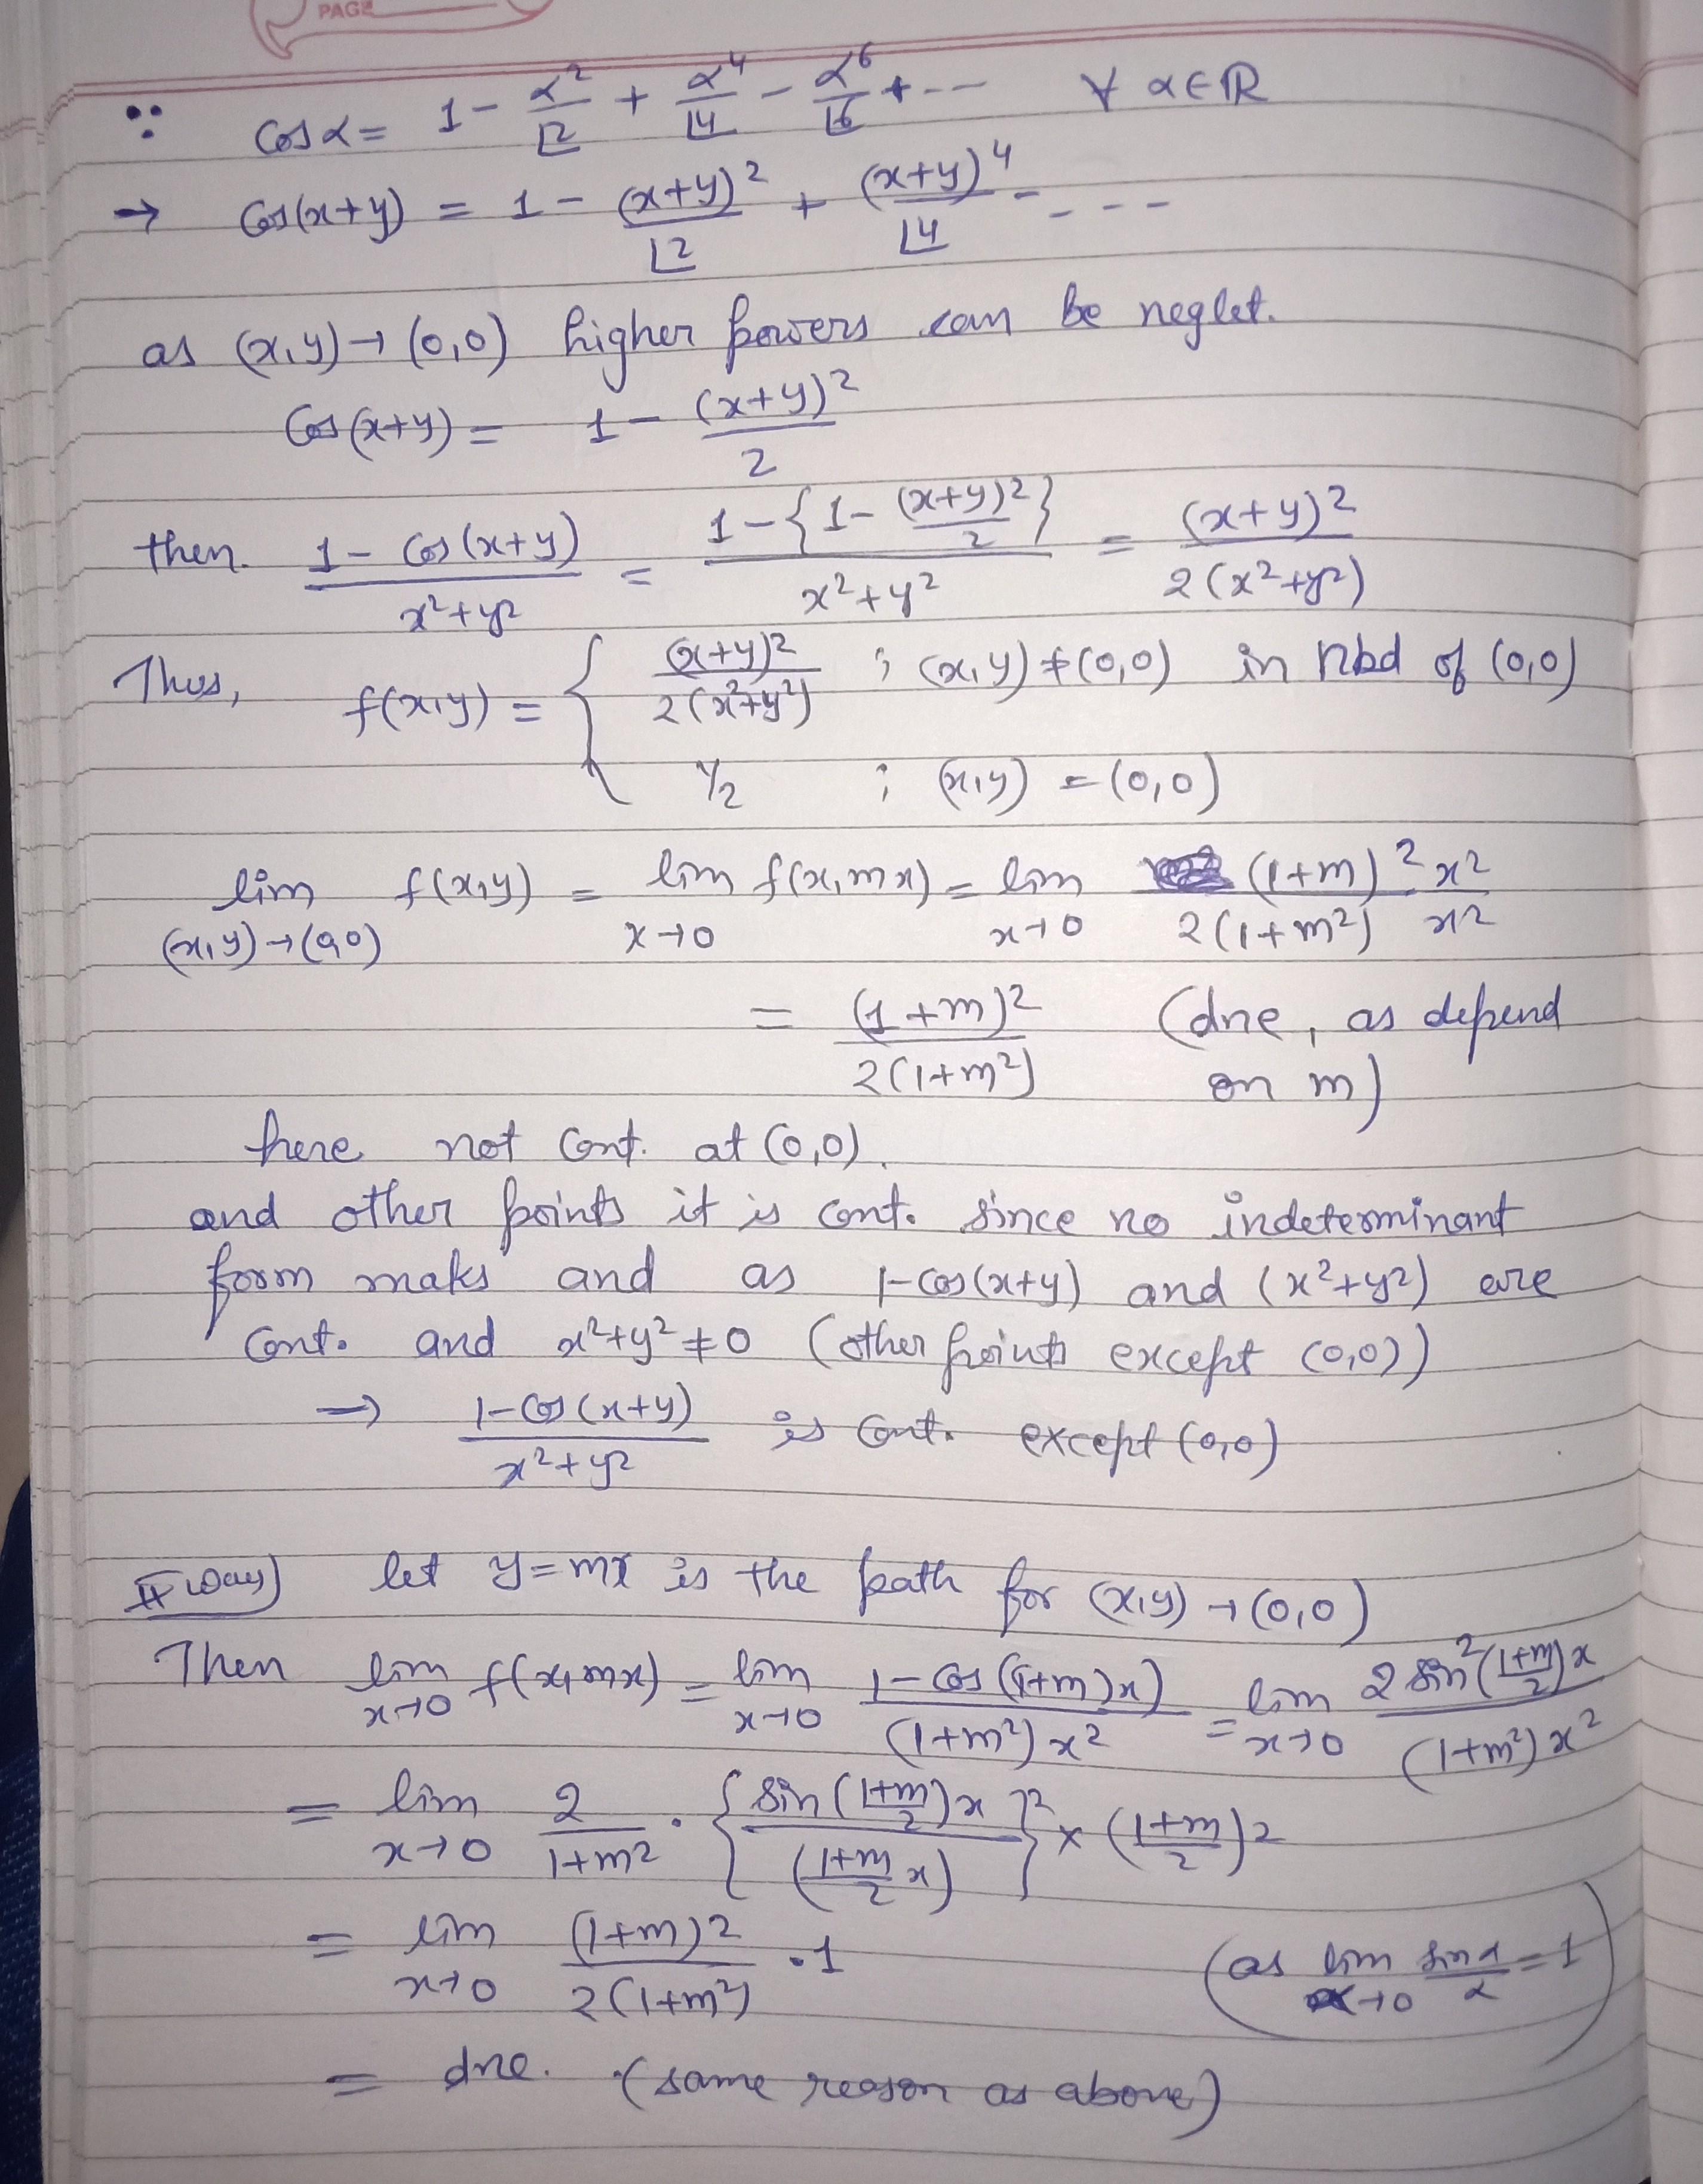 PAGE
∵ Cos α = 1 - α²/⌊2 + α⁴/⌊4 - α⁶/⌊6 + --- ∀ α∈ℝ
→ Cos(x+y) = 1 - (x+y)²/⌊2 + (x+y)⁴/⌊4 - ----
as (x,y)→(0,0) higher powers can be neglet.
Cos(x+y) = 1 - (x+y)²/2
then. 1 - Cos(x+y)/x²+y² = 1-{1-(x+y)²/2}/x²+y² = (x+y)²/2(x²+y²)
Thus, f(x,y) = { (x+y)²/2(x²+y²) ; (x,y)≠(0,0) in nbd of (0,0)
1/2 ; (x,y) = (0,0)
lim (x,y)→(0,0) f(x,y) = lim x→0 f(x,mx) = lim x→0 (1+m)²/2(1+m²) x²/x²
= (1+m)²/2(1+m²) (dne, as depend
on m)
here not Cont. at (0,0).
and other points it is cont. since no indeterminant
form maks and as 1-cos(x+y) and (x²+y²) are
Cont. and x²+y²≠0 (other points except (0,0))
→ 1-Cos(x+y)/x²+y² is Cont. except (0,0)
II way) let y=mx is the path for (x,y)→(0,0)
Then lim x→0 f(x,mx) = lim x→0 1-Cos((1+m)x)/(1+m²)x² = lim x→0 2 sin²(1+m/2)x/(1+m²)x²
= lim x→0 2/1+m² · {sin(1+m/2)x/(1+m/2 x)}² × (1+m/2)²
= lim x→0 (1+m)²/2(1+m²) · 1 (as lim α→0 sinα/α = 1)
= dne. (same reason as above)